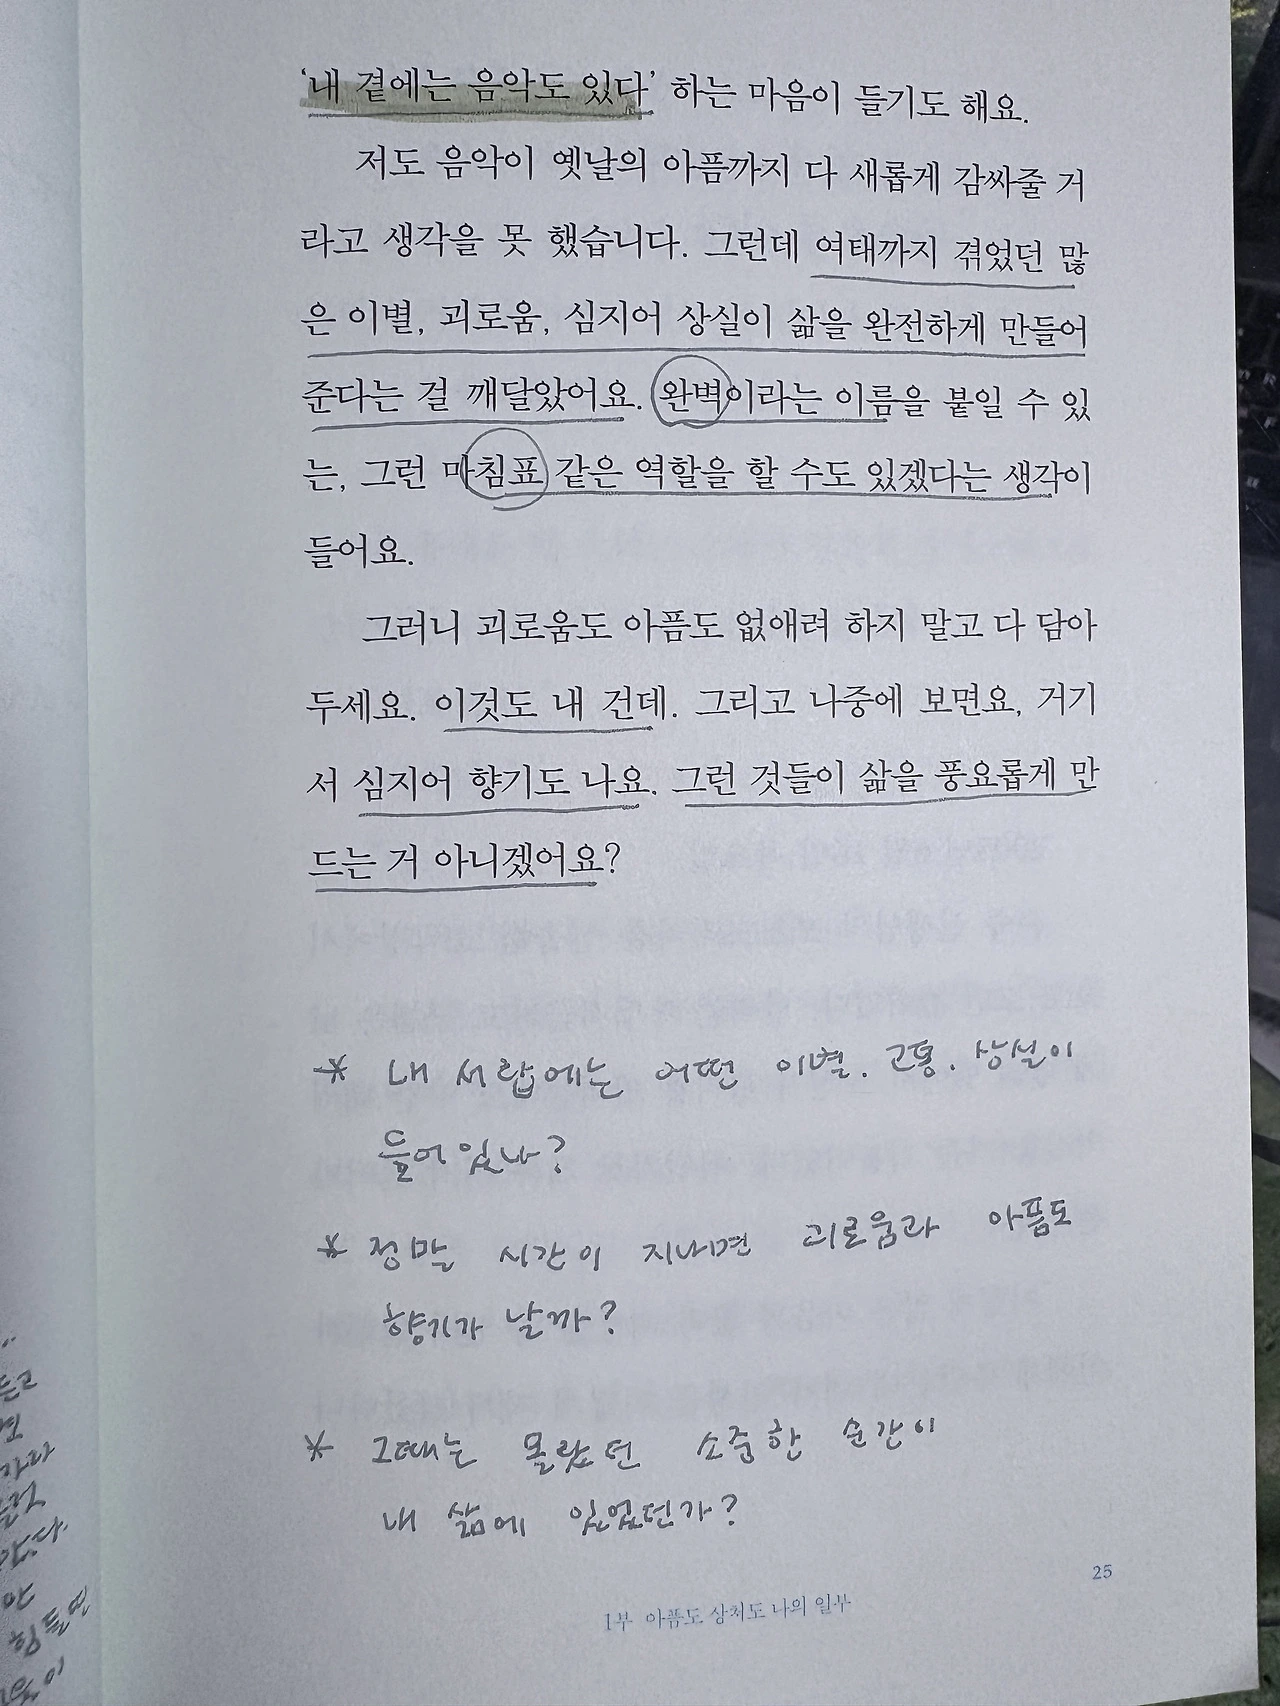 ‘내 곁에는 음악도 있다’ 하는 마음이 들기도 해요.
저도 음악이 옛날의 아픔까지 다 새롭게 감싸줄 거
라고 생각을 못 했습니다. 그런데 여태까지 겪었던 많
은 이별, 괴로움, 심지어 상실이 삶을 완전하게 만들어
준다는 걸 깨달았어요. 완벽이라는 이름을 붙일 수 있
는, 그런 마침표 같은 역할을 할 수도 있겠다는 생각이
들어요.
그러니 괴로움도 아픔도 없애려 하지 말고 다 담아
두세요. 이것도 내 건데. 그리고 나중에 보면요, 거기
서 심지어 향기도 나요. 그런 것들이 삶을 풍요롭게 만
드는 거 아니겠어요?
* 내 서랍에는 어떤 이별. 고통. 상실이
들어있나?
* 정말 시간이 지나면 괴로움과 아픔도
향기가 날까?
* 그때는 몰랐던 소중한 순간이
내 삶에 있었던가?
25
1부 아픔도 상처도 나의 일부